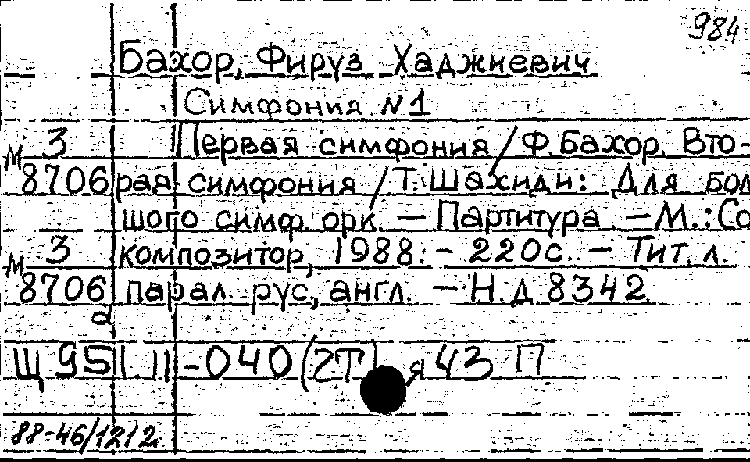 984
Бахор, Фируз Хаджиевич
Симфония N1
М 3 Первая симфония / Ф. Бахор. Вто-
8706 рая симфония / Т. Шахиди: Для бол
шого симф. орк. — Партитура. — М.: Со
М 3 композитор, 1988. - 220с. — Тит. л.
8706 парал. рус., англ. — Н.д 8342
Щ 951.11-040(2Т) я43 П
88-46/1212